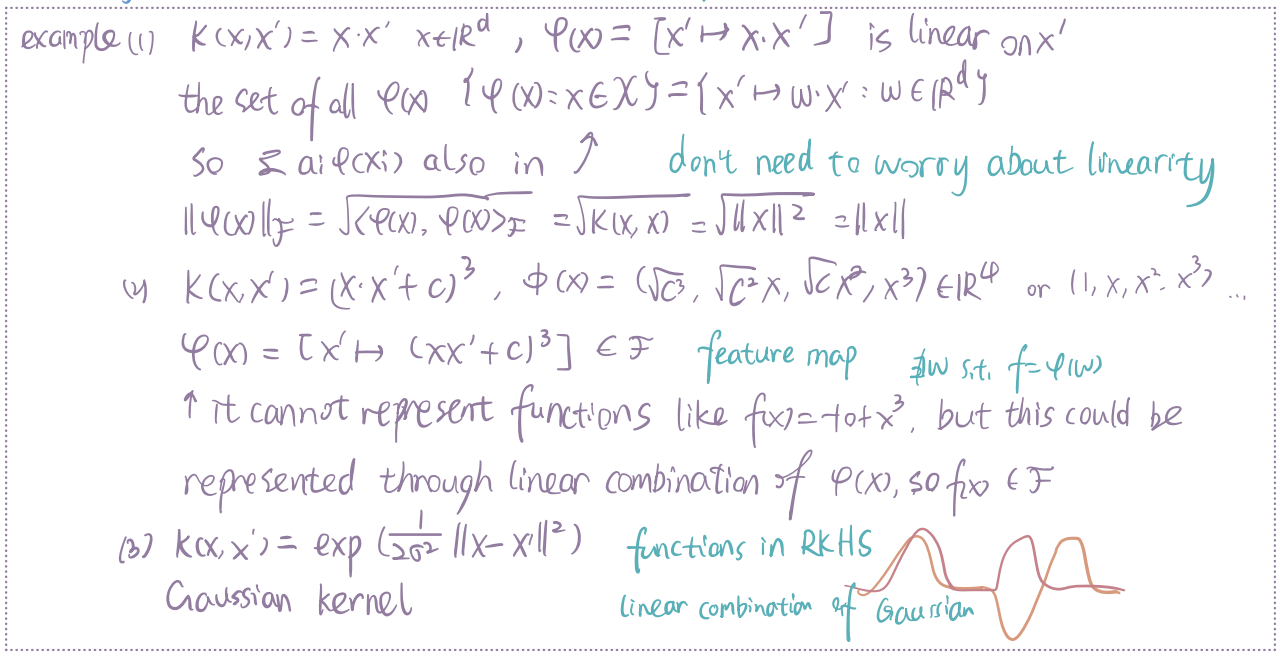 example (1) K(x,x') = x·x' x∈ℝᵈ , φ(x) = [x' ↦ x·x'] is linear on x'
the set of all φ(x) {φ(x) : x∈X} = {x' ↦ w·x' : w∈ℝᵈ}
so Σ aiφ(xi) also in ↗ don't need to worry about linearity
||φ(x)||_F = √<φ(x), φ(x)>_F = √K(x,x) = √||x||² = ||x||
(2) K(x,x') = (x·x'+c)³ , ϕ(x) = (√c³, √c² x, √c x², x³) ∈ℝ⁴ or (1, x, x², x³) ...
φ(x) = [x' ↦ (xx'+c)³] ∈ F feature map ∄w s.t. f=φ(w)
↑ it cannot represent functions like f(x)=-10+x³, but this could be
represented through linear combination of φ(x), so f(x) ∈ F
(3) K(x,x') = exp (1/2σ² ||x-x'||²) functions in RKHS
Gaussian kernel linear combination of Gaussian